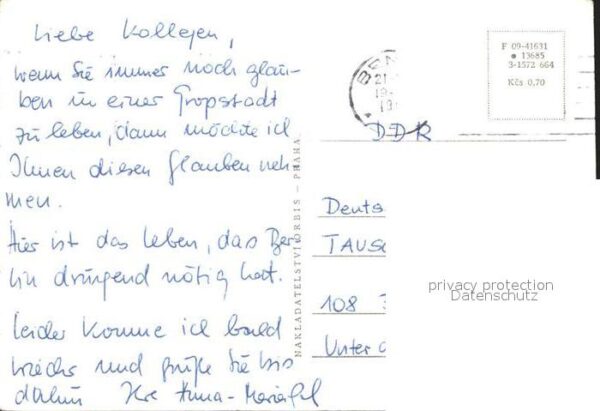 Liebe Kollegen,
wenn Sie immer noch glau-
ben in einer Großstadt
zu leben, dann möchte ich
Ihnen diesen Glauben neh-
men.
Hier ist das Leben, das Ber-
lin dringend nötig hat.
Leider komme ich bald
und grüße Sie bis
dahin Ihre Anna-
F 09-41631
• 13685
3-1572 664
Kčs 0,70
21.
DDR
NAKLADATELSTVÍ ORBIS – PRAHA
Deuts
TAUSC
108
Unter d
privacy protection
Datenschutz